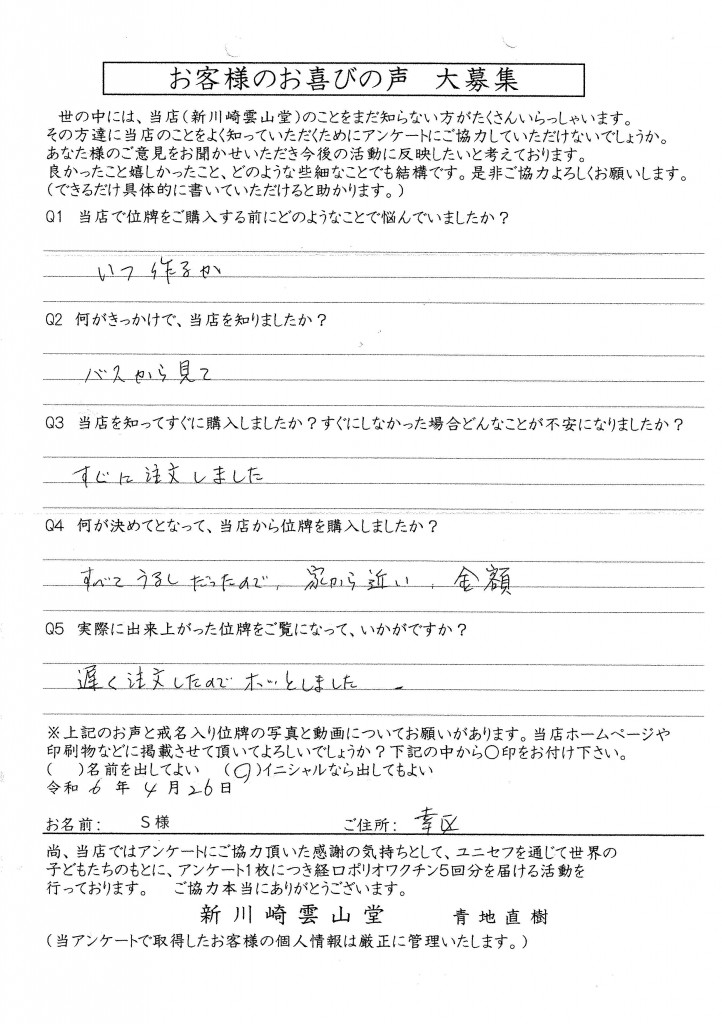 お客様のお喜びの声　大募集
世の中には、当店(新川崎雲山堂)のことをまだ知らない方がたくさんいらっしゃいます。
その方達に当店のことをよく知っていただくためにアンケートにご協力していただけないでしょうか。
あなた様のご意見をお聞かせいただき今後の活動に反映したいと考えております。
良かったこと嬉しかったこと、どのような些細なことでも結構です。是非ご協力よろしくお願いします。
(できるだけ具体的に書いていただけると助かります。)
Q1 当店で位牌をご購入する前にどのようなことで悩んでいましたか？
いつ作るか
Q2 何がきっかけで、当店を知りましたか？
バスから見て
Q3 当店を知ってすぐに購入しましたか？すぐにしなかった場合どんなことが不安になりましたか？
すぐに注文しました
Q4 何が決めてとなって、当店から位牌を購入しましたか？
すべてうるしだったので、家から近い、金額
Q5 実際に出来上がった位牌をご覧になって、いかがですか？
遅く注文したのでホッとしました
※上記のお声と戒名入り位牌の写真と動画についてお願いがあります。当店ホームページや
印刷物などに掲載させて頂いてよろしいでしょうか？下記の中から○印をお付け下さい。
(　)名前を出してよい　(○)イニシャルなら出してもよい
令和 6 年 4 月 26 日
お名前:　S様　ご住所: 幸区
尚、当店ではアンケートにご協力頂いた感謝の気持ちとして、ユニセフを通じて世界の
子どもたちのもとに、アンケート1枚につき経口ポリオワクチン5回分を届ける活動を
行っております。　ご協力本当にありがとうございます。
新川崎雲山堂　青地直樹
(当アンケートで取得したお客様の個人情報は厳正に管理いたします。)